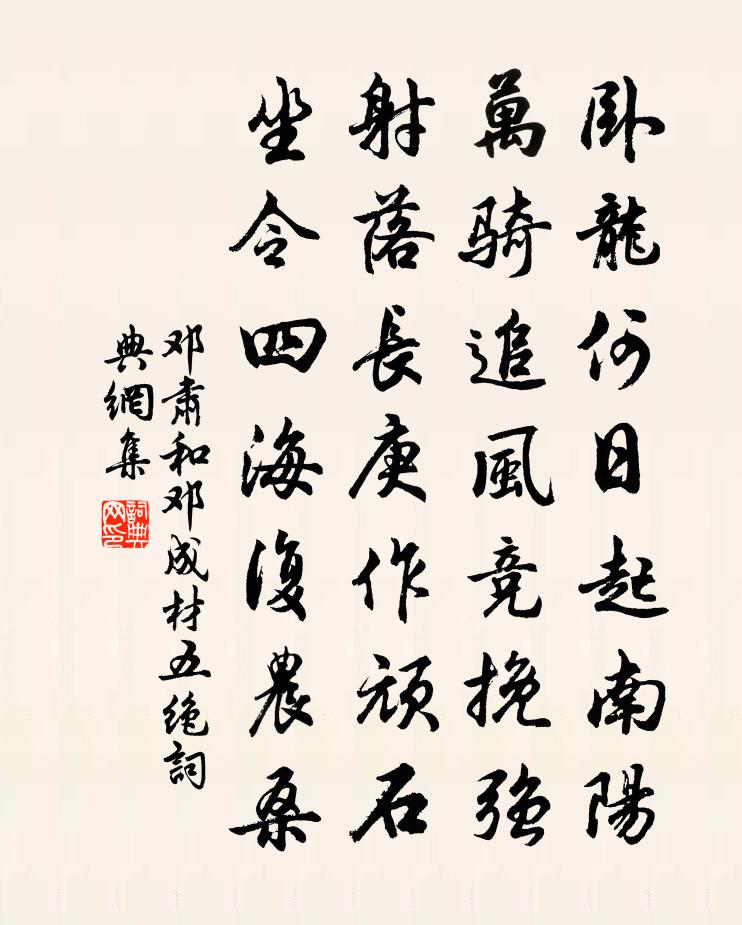 卧龍何日起南陽
萬騎追風竞挽强
射落長庚作頑石
坐令四海復農桑
邓肅和邓成材五绝詞
典網集
詞典网印